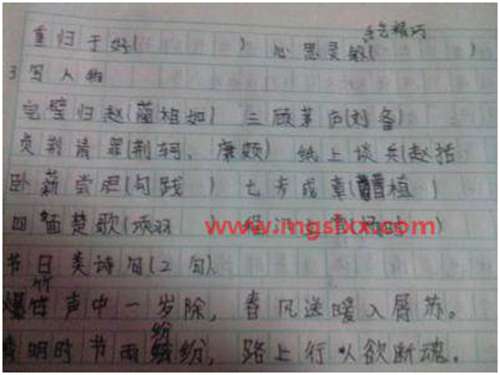 精巧
重归于好( ) 心思灵敏(
3写人物
完璧归赵(蔺相如) 三顾茅庐(刘备)
负荆请罪(荆轲、廉颇) 纸上谈兵(赵括
卧薪尝胆(勾践) 七步成章(曹植)
四面楚歌(项羽)
节日美诗句(2句)
爆竹声中一岁除,春风送暖入屠苏。
清明时节雨纷纷,路上行人欲断魂。